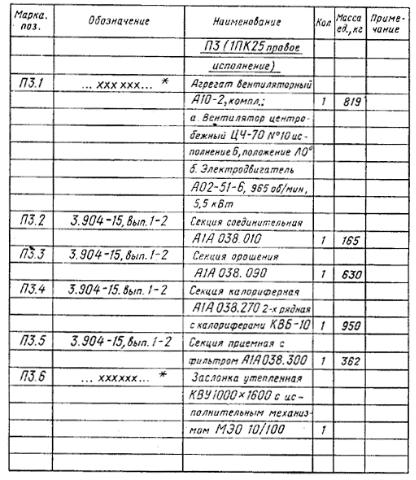 Марка. поз. Обозначение Наименование Кол Масса ед., кг Приме- чание
П3 (1ПК25 правое
исполнение)
П3.1 ... ххх ххх... * Агрегат вентиляторный
А10-2, компл.; 1 819
а. Вентилятор центро-
бежный Ц4-70 №10 ис-
полнение 6, положение Л0°
б. Электродвигатель
А02-51-6, 965 об/мин,
5,5 кВт
П3.2 3.904-15, вып. 1-2 Секция соединительная
А1А 038.010 1 165
П3.3 3.904-15, вып. 1-2 Секция орошения
А1А 038.090 1 630
П3.4 3.904-15. вып. 1-2 Секция калориферная
А1А 038.270 2-х рядная
с калориферами КВБ-10 1 950
П3.5 3.904-15, вып. 1-2 Секция приемная с
фильтром А1А 038.300 1 362
П3.6 ... хххххх... * Заслонка утепленная
КВУ 1000×1600 с ис-
полнительным механиз-
мом МЭО 10/100 1